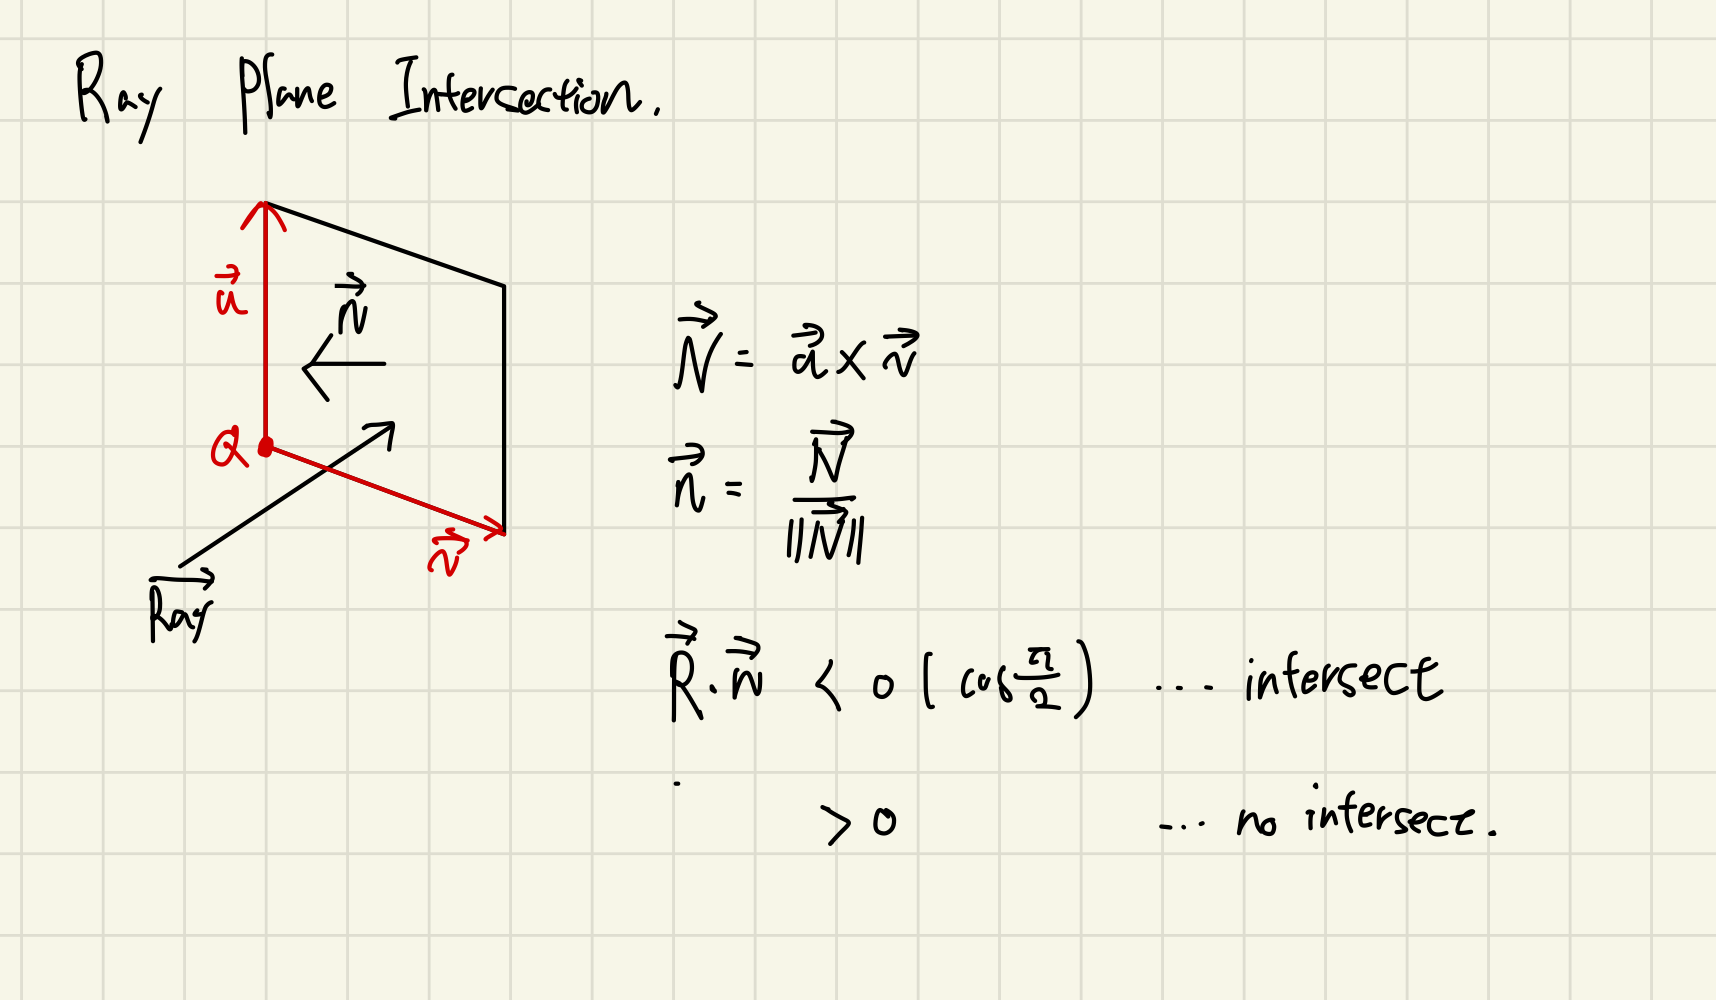 Ray Plane Intersection.
u⃗
N⃗
Q
v⃗
Ray⃗
N⃗ = u⃗ × v⃗
n⃗ = N⃗ / ||N⃗||
R⃗ · n⃗ < 0 (cos π/2) ... intersect
> 0 ... no intersect.